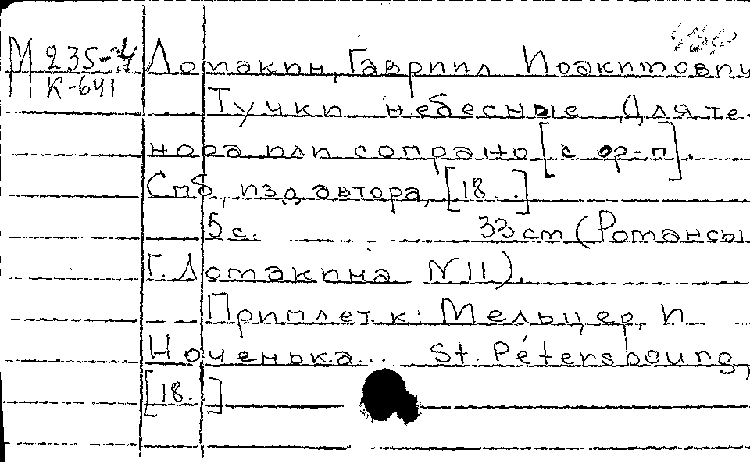 М 235-4 Ломакин, Гавриил Иоакимович
К-641
Тучки небесные. Для те-
нора или сопрано [с ф-п].
Спб, изд автора, [18..]
5 с. 33 cm (Романсы
Г. Ломакина N 11).
Приплет к: Мельцер, И
Ноченька... St. Pétersbourg,
[18..]